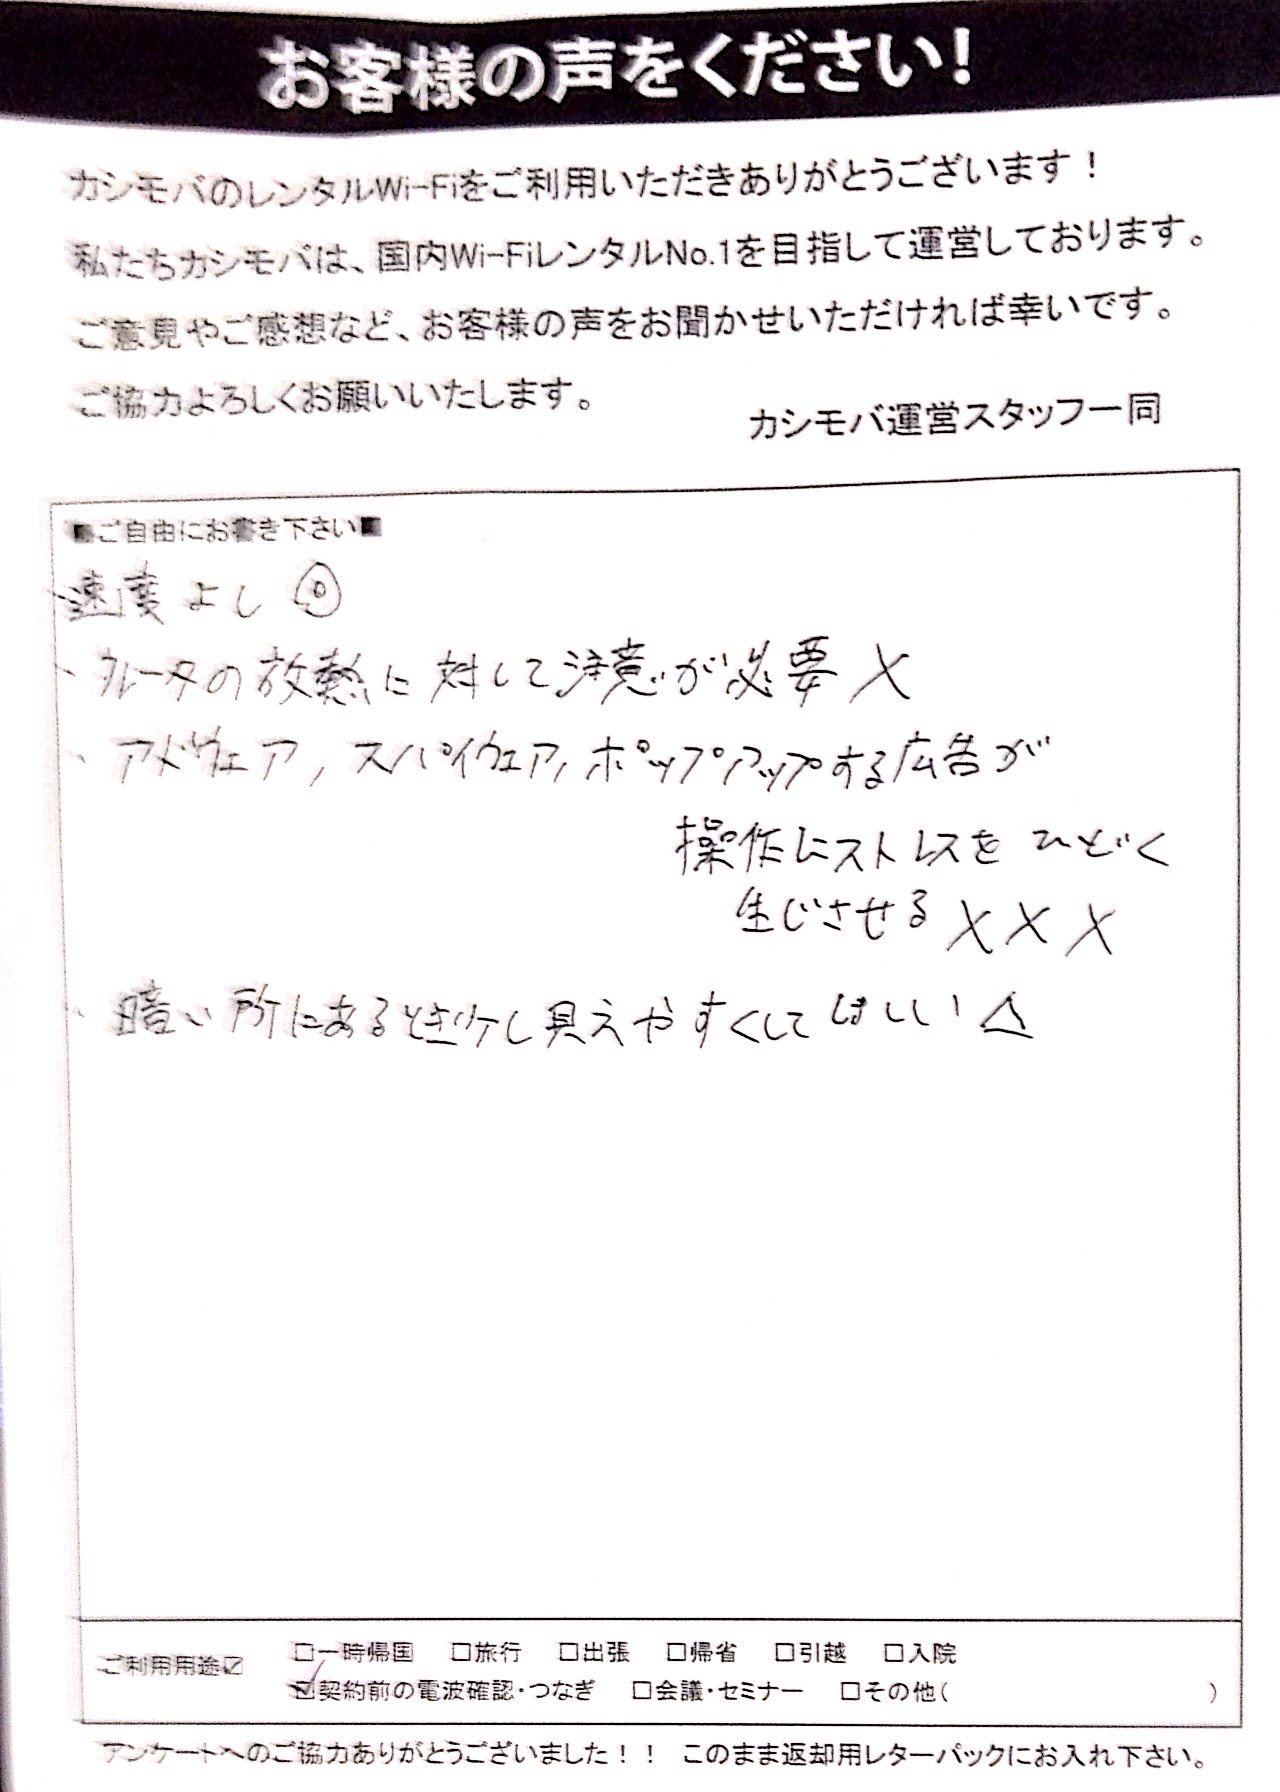 お客様の声をください!
カシモバのレンタルWi-Fiをご利用いただきありがとうございます!
私たちカシモバは、国内Wi-FiレンタルNo.1を目指して運営しております。
ご意見やご感想など、お客様の声をお聞かせいただければ幸いです。
ご協力よろしくお願いいたします。
カシモバ運営スタッフ一同
■ご自由にお書き下さい■
・速度よし◎
・ルータの放熱に対して注意が必要 ×
・アドウェア, スパイウェア, ポップアップする広告が
操作にストレスをひどく
生じさせる ×××
・暗い所にあるとき少し見えやすくしてほしい △
ご利用用途☑ □一時帰国 □旅行 □出張 □帰省 □引越 □入院
☑契約前の電波確認・つなぎ □会議・セミナー □その他( )
アンケートへのご協力ありがとうございました!! このまま返却用レターパックにお入れ下さい。